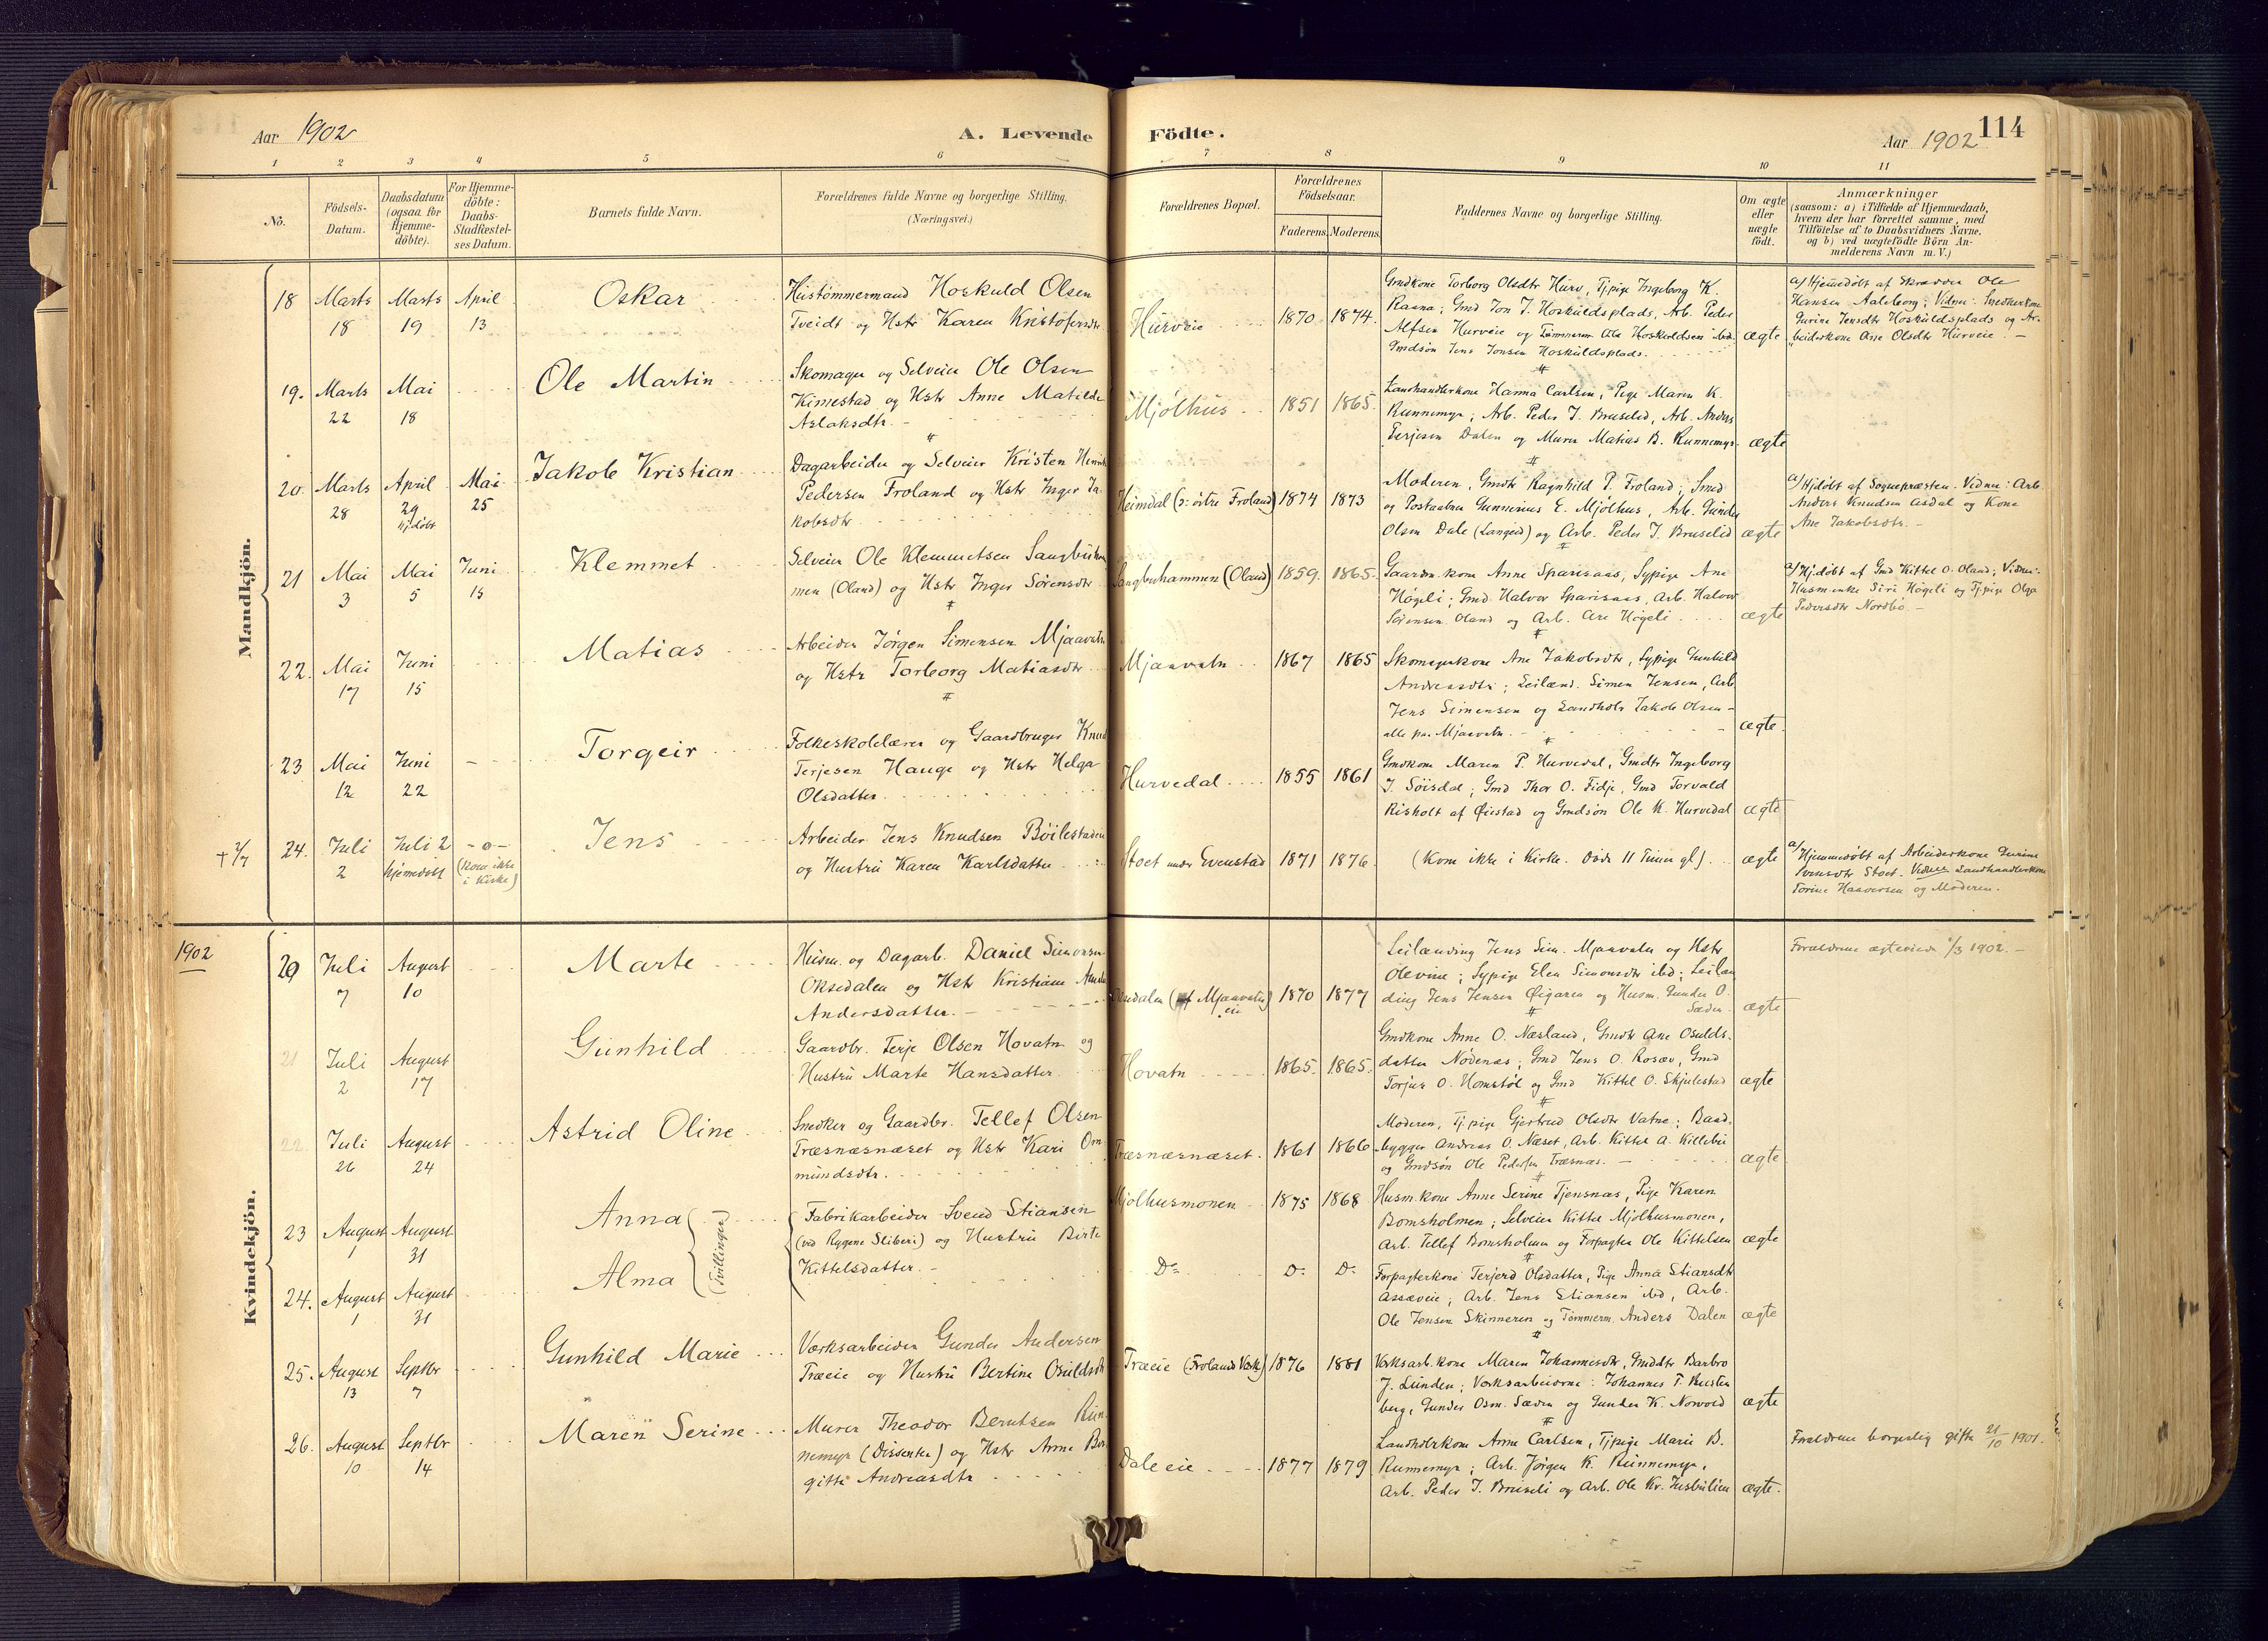 Aar 1902
A. Levende
Födte.
Aar 1902
114
1 2 3 4 5 6 7 8 9 10 11
No.
Födsels-
Datum.
Daabsdatum
(ogsaa for
Hjemme-
döbte).
For Hjemme-
döbte:
Daabs-
Stadfæstel-
ses Datum.
Barnets fulde Navn.
Forældrenes fulde Navne og borgerlige Stilling.
(Næringsvei.)
Forældrenes Bopæl.
Forældrenes
Födselsaar.
Faderens. Moderens.
Faddernes Navne og borgerlige Stilling.
Om ægte
eller
uægte
födt.
Anmærkninger
(saasom: a) i Tilfælde af Hjemmedaab,
hvem der har forrettet samme, med
Tilföielse af to Daabsvidners Navne.
og b) ved uægtefödte Börn An-
melderens Navn m. V.)
Mandkjön.
18 Marts 18 Marts 19 April 13
Oskar
Hustømmermand Hoskuld Olsen
Tveidt og Hstr Karen Kristofersdtr
Hurveie 1870 1874
Gmdkone Torborg Olsdtr Hurv, Tj.pige Ingeborg K.
Rasna; Gmd Jon J. Hoskuldsplads, Arb. Peder
Alfsen Hurveie og Tømmerm. Ole Hoskuldsen ibd.
Gmdsøn Jens Jonsen Hoskuldsplads.
ægte
a/ Hjemmedøbt af Skrædder Ole
Hansen Aaleborg; Vidner: Snedkerkone
Gurine Jensdtr Hoskuldsplads og Ar-
beiderkone Ane Olsdtr Hurveie. —
19. Marts 22 Mai 18
Ole Martin
Skomager og Selveier Ole Olsen
Kimestad og Hstr Anne Matilde
Aslaksdtr. —
Mjølhus 1851 1865.
Landhandlerkone Hanna Carlsen, Pige Maren K.
Runnemyr; Arb. Peder J. Bruselid, Arb. Anders
Terjesen Dalen og Murer Matias B. Runnemyr.
ægte
20. Marts 28 April 29 hj.døbt Mai 25
Jakob Kristian
Dagarbeider og Selveier Kristen Henrik
Pedersen Froland og Hstr Inger Ja-
kobsdtr
Heimdal (ɔ: østre Froland) 1874 1873
Moderen, Gmdtr Ragnhild P. Froland; Smed
og Postaabner Gunnerius E. Mjølhus, Arb. Gunder
Olsen Dale (Langeid) og Arb. Peder J. Bruselid
ægte
a/ Hj.døbt af Sognepræsten. Vidner: Arb.
Anders Knudsen Asdal og Kone
Ane Jakobsdtr. —
21 Mai 3 Mai 5 Juni 15
Klemmet
Selveier Ole Klemmetsen Sangbuham-
men (Oland) og Hstr Inger Sørensdtr
Sangbuhammen (Oland) 1859. 1865.
Gaardm.kone Anne Sparsaas, Sypige Ane
Høgeli; Gmd. Halvor Sparsaas, Arb. Halvor
Sørensen Oland og Arb. Are Høgeli
ægte
a/ Hj.døbt af Gmd Kittel O. Oland; Vidner:
Husm.enke Siri Høgeli og Tj.pige Olga
Pedersdtr Nordbø. —
22. Mai 17 Juni 15
Matias
Arbeider Jørgen Simensen Mjaavatn
og Hstr Torborg Matiasdtr
Mjaavatn 1867 1865
Skomagerkone Ane Jakobsdtr, Sypige Gunhild
Andreasdtr; Leilænd. Simen Jensen, Arb
Jens Simensen og Landhdlr Jakob Olsen —
alle paa Mjaavatn.
ægte.
23 Mai 12 Juni 22
Torgeir
Folkeskolelærer og Gaardbruger Knud
Terjesen Hauge og Hstr Helga
Olsdatter.
Hurvedal 1855 1861
Gmdkone Maren P. Hurvedal, Gmdtr Ingeborg
J. Søisdal; Gmd Thor O. Fidje, Gmd Torvald
Risholt af Øiestad og Gmdsøn Ole K. Hurvedal
ægte
† 2/7 24. Juli 2 Juli 2 hjemmedøbt - o - (Kom ikke i Kirke)
Jens
Arbeider Jens Knudsen Bøilestaden
og Hustru Karen Karlsdatter
Stoet under Evenstad 1871 1876.
(Kom ikke i Kirke. Døde 11 Timer gl).
ægte
a/ Hjemmedøbt af Arbeiderkone Gurine
Svensdtr Stoet. Vidner Landhandlerkone
Torine Haaversen og Moderen.
1902
Kvindekjön.
20 Juli 7 August 10
Marte
Husm. og Dagarb. Daniel Simonsen
Oksedalen og Hstr Kristiane Amalie
Andersdatter. —
Oksedalen (Mjaavatn eie) 1870 1877
Leilænding Jens Sim. Mjaavatn og Hstr
Olevine; Sypige Elen Simonsdtr ibd; Leilæn
ding Jens Jensen Øigaren og Husm. Gunder O.
Sæden
ægte
Forældrene ægteviede /3 1902. —
21 Juli 2 August 17
Gunhild
Gaardbr. Terje Olsen Hovatn og
Hustru Marte Hansdatter
Hovatn 1865. 1865.
Gmdkone Anne O. Næsland, Gmdtr Ane Osulds-
datter Nødenæs; Gmd Jens O. Rosæv, Gmd
Torjus O. Homstøl og Gmd Kittel O. Skjulestad
ægte
22. Juli 26 August 24
Astrid Oline
Snedker og Gaardbr. Tellef Olsen
Træsnæsnæset og Hstr Kari Om-
mundsdtr.
Træsnæsnæset. 1861 1866
Moderen, Tj.pige Gjertrud Olsdtr Vatne; Baad-
bygger Andreas O. Næset, Arb. Kittel A. Killebu
og Gmdsøn Ole Pedersen Træsnæs. —
ægte
23 August 1 August 31
Anna
(Tvillinger)
Fabrikarbeider Svend Stiansen
(ved Rygene Sliberi) og Hustru Birte
Kittelsdatter. —
Mjølhusmonen 1875 1868
Husm.kone Anne Serine Tjensnæs, Pige Karen
Bomsholmen; Selveier Kittel Mjølhusmonen,
Arb. Tellef Bomsholmen og Forpagter Ole Kittelsen
ægte
24. August 1 August 31
Alma
Do D. D.
Forpagterkone Terjerd Olsdatter, Pige Anna Stiansdtr
Assæveie; Arb. Jens Stiansen ibd, Arb.
Ole Jensen Skinneren og Tømmerm. Anders Dalen
ægte
25. August 13 Septbr 7
Gunhild Marie
Værksarbeider Gunder Andersen
Træeie og Hustru Bertine Osuldsdtr
Træeie (Frolands Værk) 1876 1881
Værksarb.kone Maren Johannesdtr, Gmddtr Barbro
J. Lunden; Værksarbeiderne: Johannes T. Busten
berg, Gunder Osm. Sæden og Gunder K. Norvold
ægte
26. August 10 Septbr 14
Maren Serine
Murer Theodor Berntsen Run-
nemyr (Dissenter) og Hstr Anne Bor-
gitte Andreasdtr
Dale eie 1877 1879
Landhdlrkone Anne Carlsen, Tj.pige Marie B.
Runnemyr; Arb. Jørgen K. Runnemyr,
Arb. Peder J. Bruseli og Arb. Ole Kr.
ægte.
Forældrene borgerlig gifte 21/10 1901.